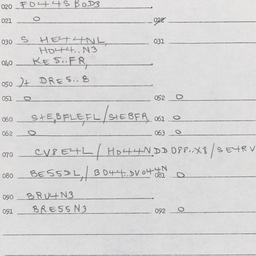 020 FD44S BODS
021 O 022
030 S HE44NL, 031
HO44..N3
040 KES..FR,
050 )4 DRES..8
051 O 052 O
060 S4E,BFLEFL/S4EBFR 061 O
062 O 063 O
070 CVPE4L/HO44NDDOPP..X8/SE4RV
080 BES5DL,/BO44.DVO44N 081 O
090 BRU4N3
091 BRESSN3 092 O